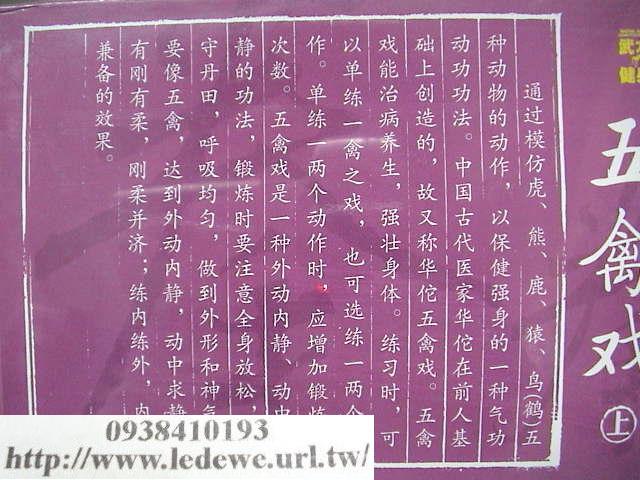 武
健
五禽戏
上
通过模仿虎、熊、鹿、猿、鸟(鹤)五
种动物的动作，以保健强身的一种气功
动功功法。中国古代医家华佗在前人基
础上创造的，故又称华佗五禽戏。五禽
戏能治病养生，强壮身体。练习时，可
以单练一禽之戏，也可选练一两个
作。单练一两个动作时，应增加锻炼
次数。五禽戏是一种外动内静、动中
静的功法，锻炼时要注意全身放松，
守丹田，呼吸均匀，做到外形和神气
要像五禽，达到外动内静，动中求静
有刚有柔，刚柔并济；练内练外，内
兼备的效果。
0938410193
http://www.ledewe.url.tw/